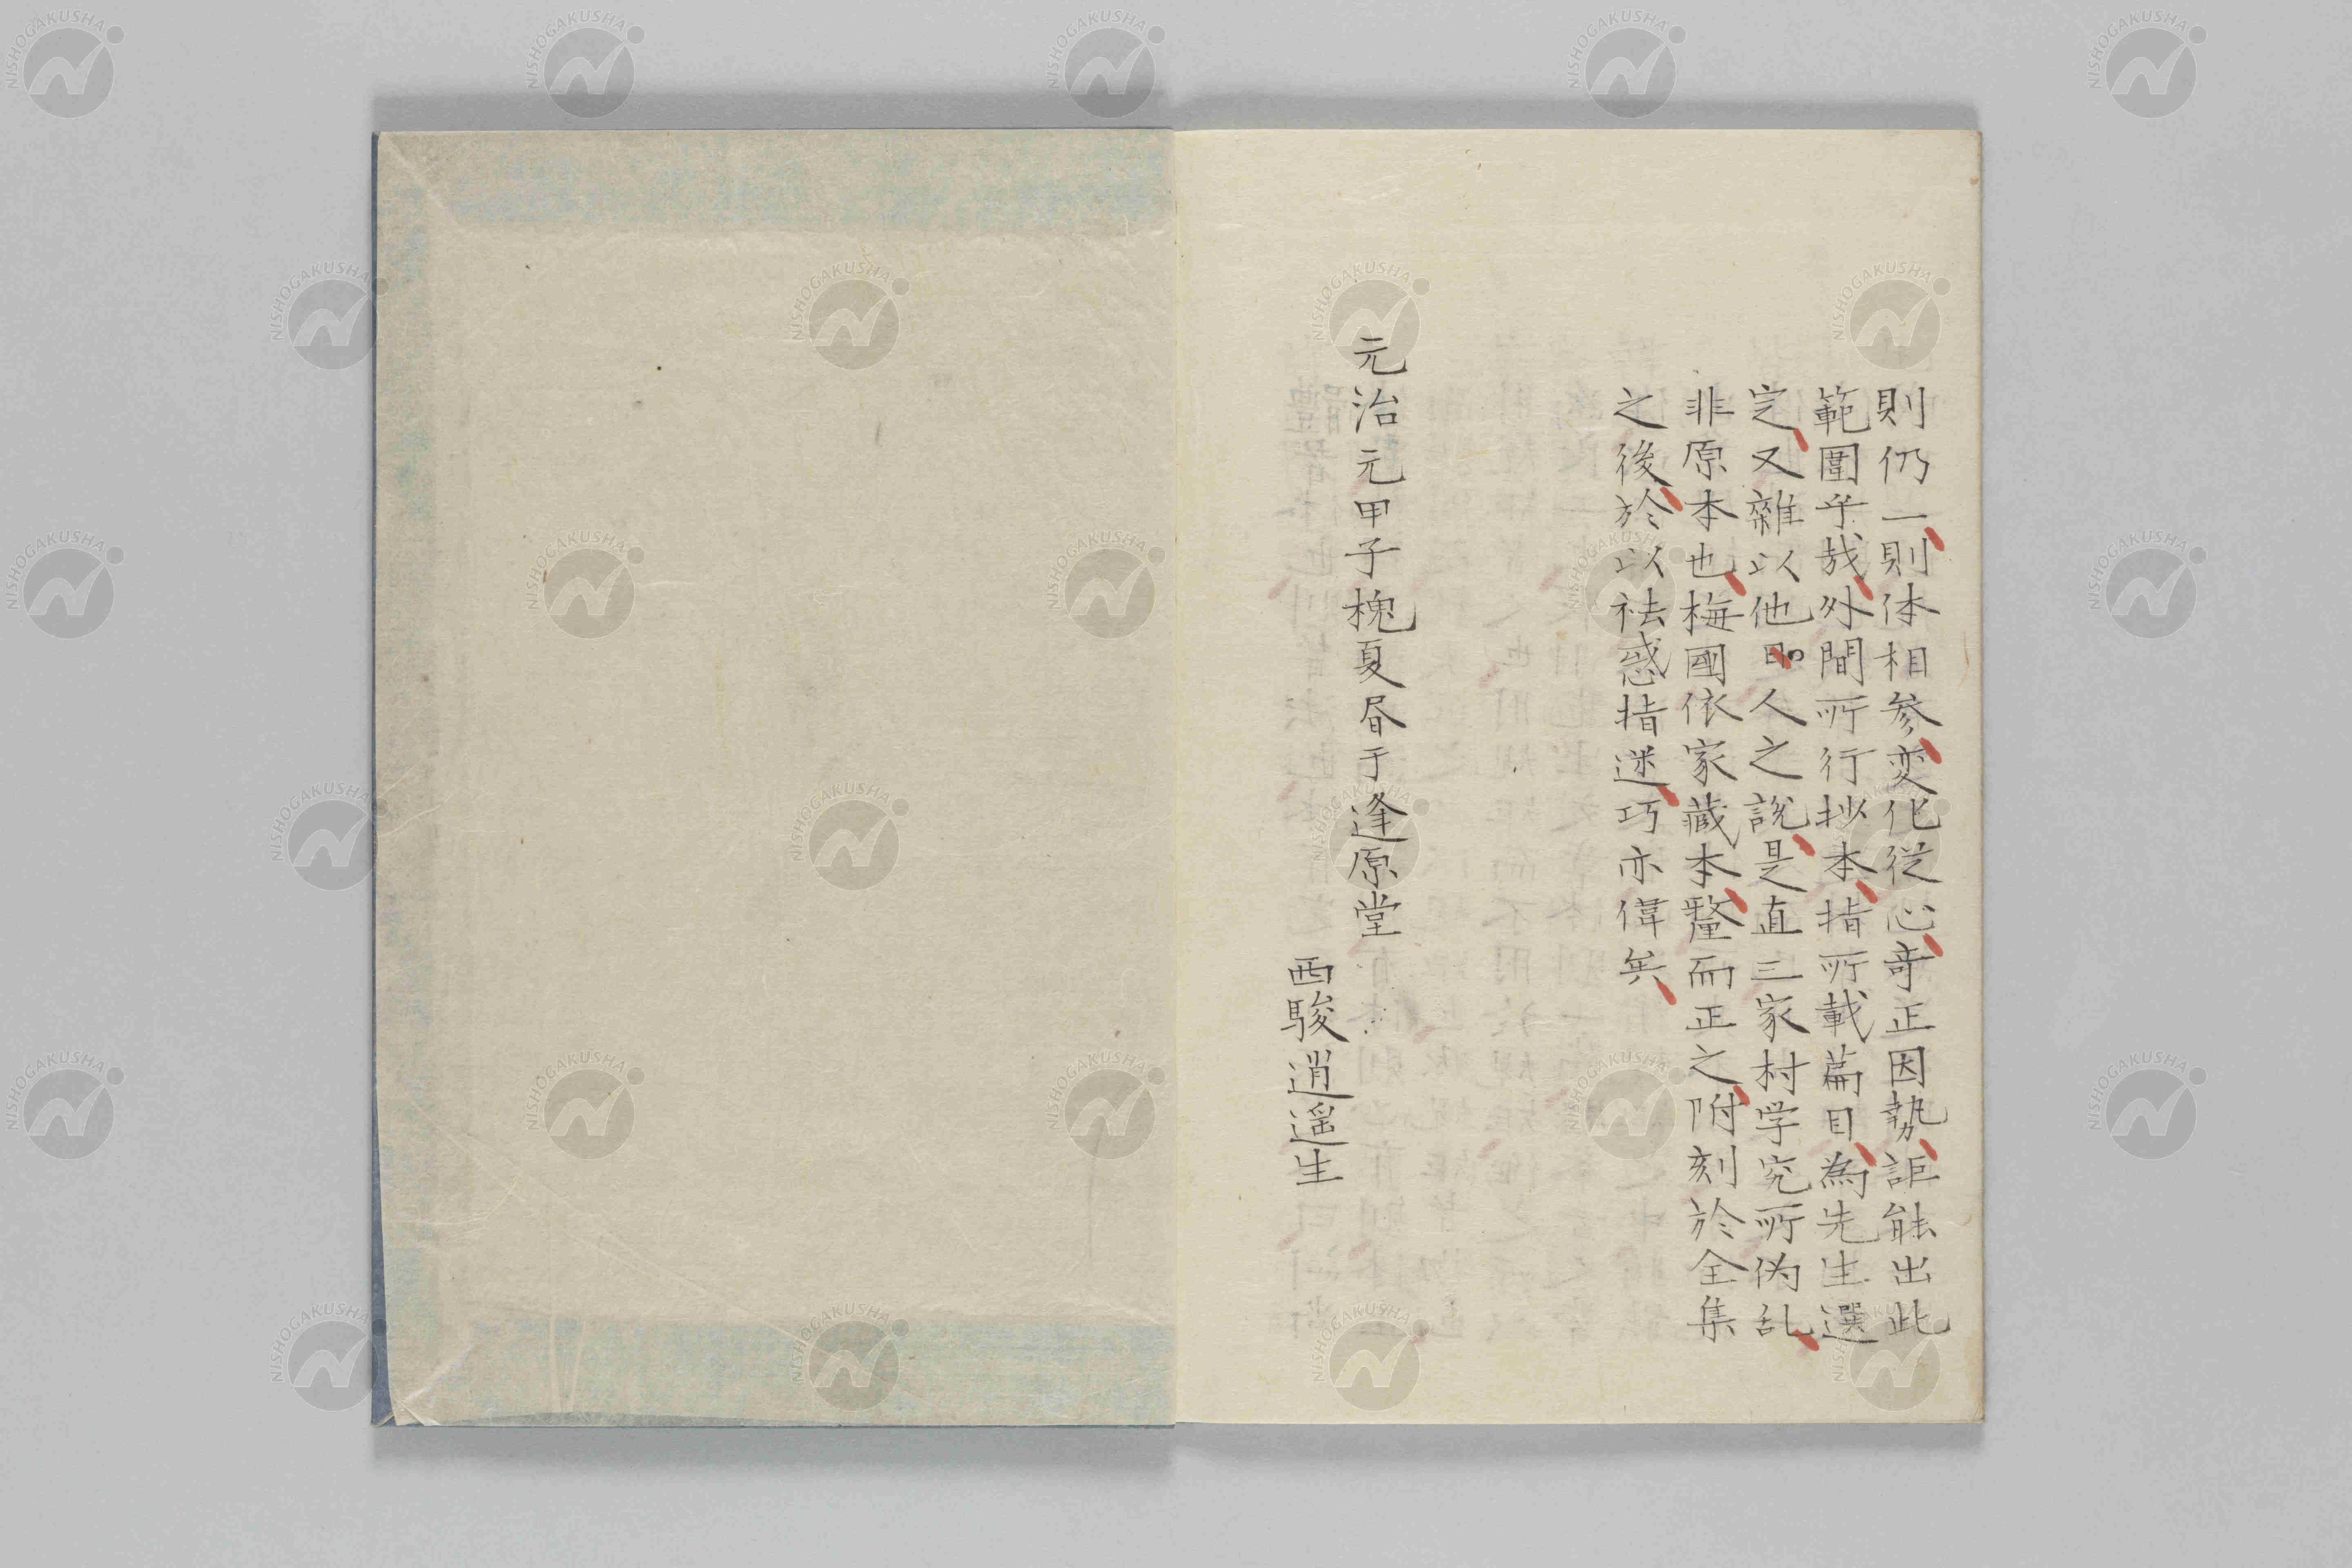 則仍一則体相参変化従心奇正因勢詎能出此
範圍乎哉外間所行抄本指所載篇目為先生選
定又雑以他人之說是直三家村学究所偽乱
非原本也梅國依家蔵本釐而正之附刻於全集
之後於以祛惑指迷巧亦偉矣
元治元甲子槐夏昏于逢原堂
西駿逍遥生